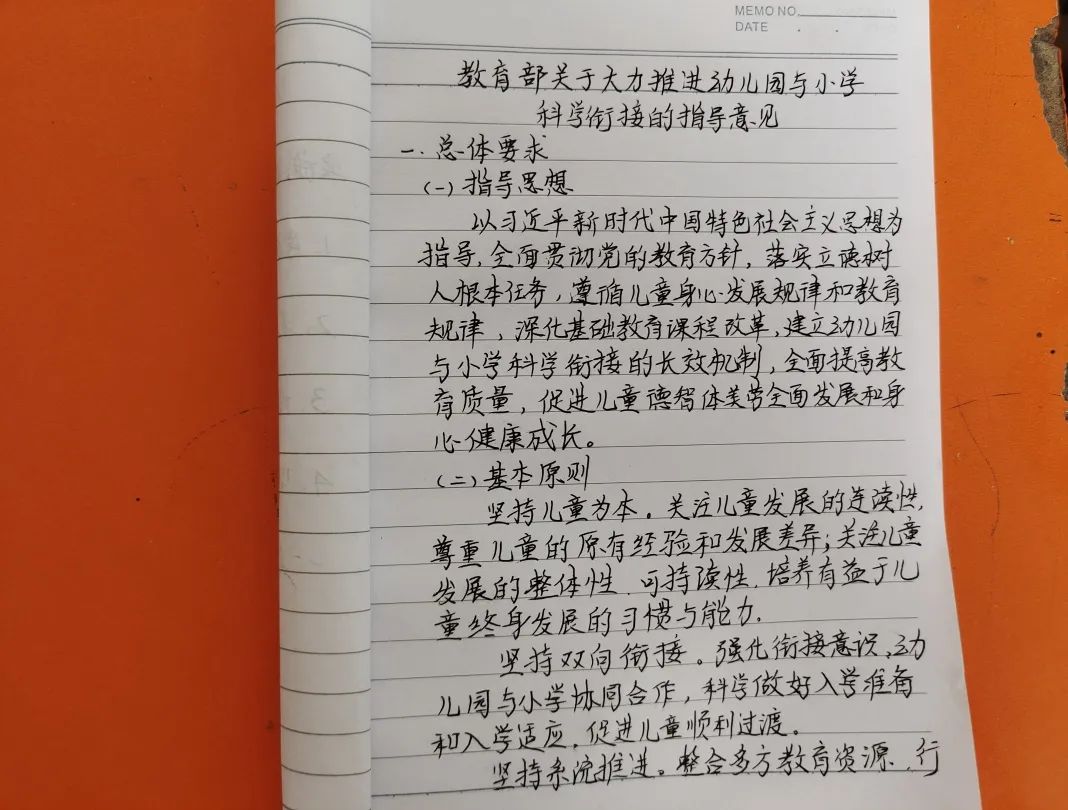 MEMO NO.
DATE . .
教育部关于大力推进幼儿园与小学
科学衔接的指导意见
一.总体要求
(一)指导思想
以习近平新时代中国特色社会主义思想为
指导,全面贯彻党的教育方针,落实立德树
人根本任务,遵循儿童身心发展规律和教育
规律,深化基础教育课程改革,建立幼儿园
与小学科学衔接的长效机制,全面提高教
育质量,促进儿童德智体美劳全面发展和身
心健康成长。
(二)基本原则
坚持儿童为本。关注儿童发展的连读性,
尊重儿童的原有经验和发展差异;关注儿童
发展的整体性、可持读性,培养有益于儿
童终身发展的习惯与能力.
坚持双向衔接。强化衔接意识,幼
儿园与小学协同合作,科学做好入学准备
和入学适应,促进儿童顺利过渡。
坚持系统推进。整合多方教育资源、行